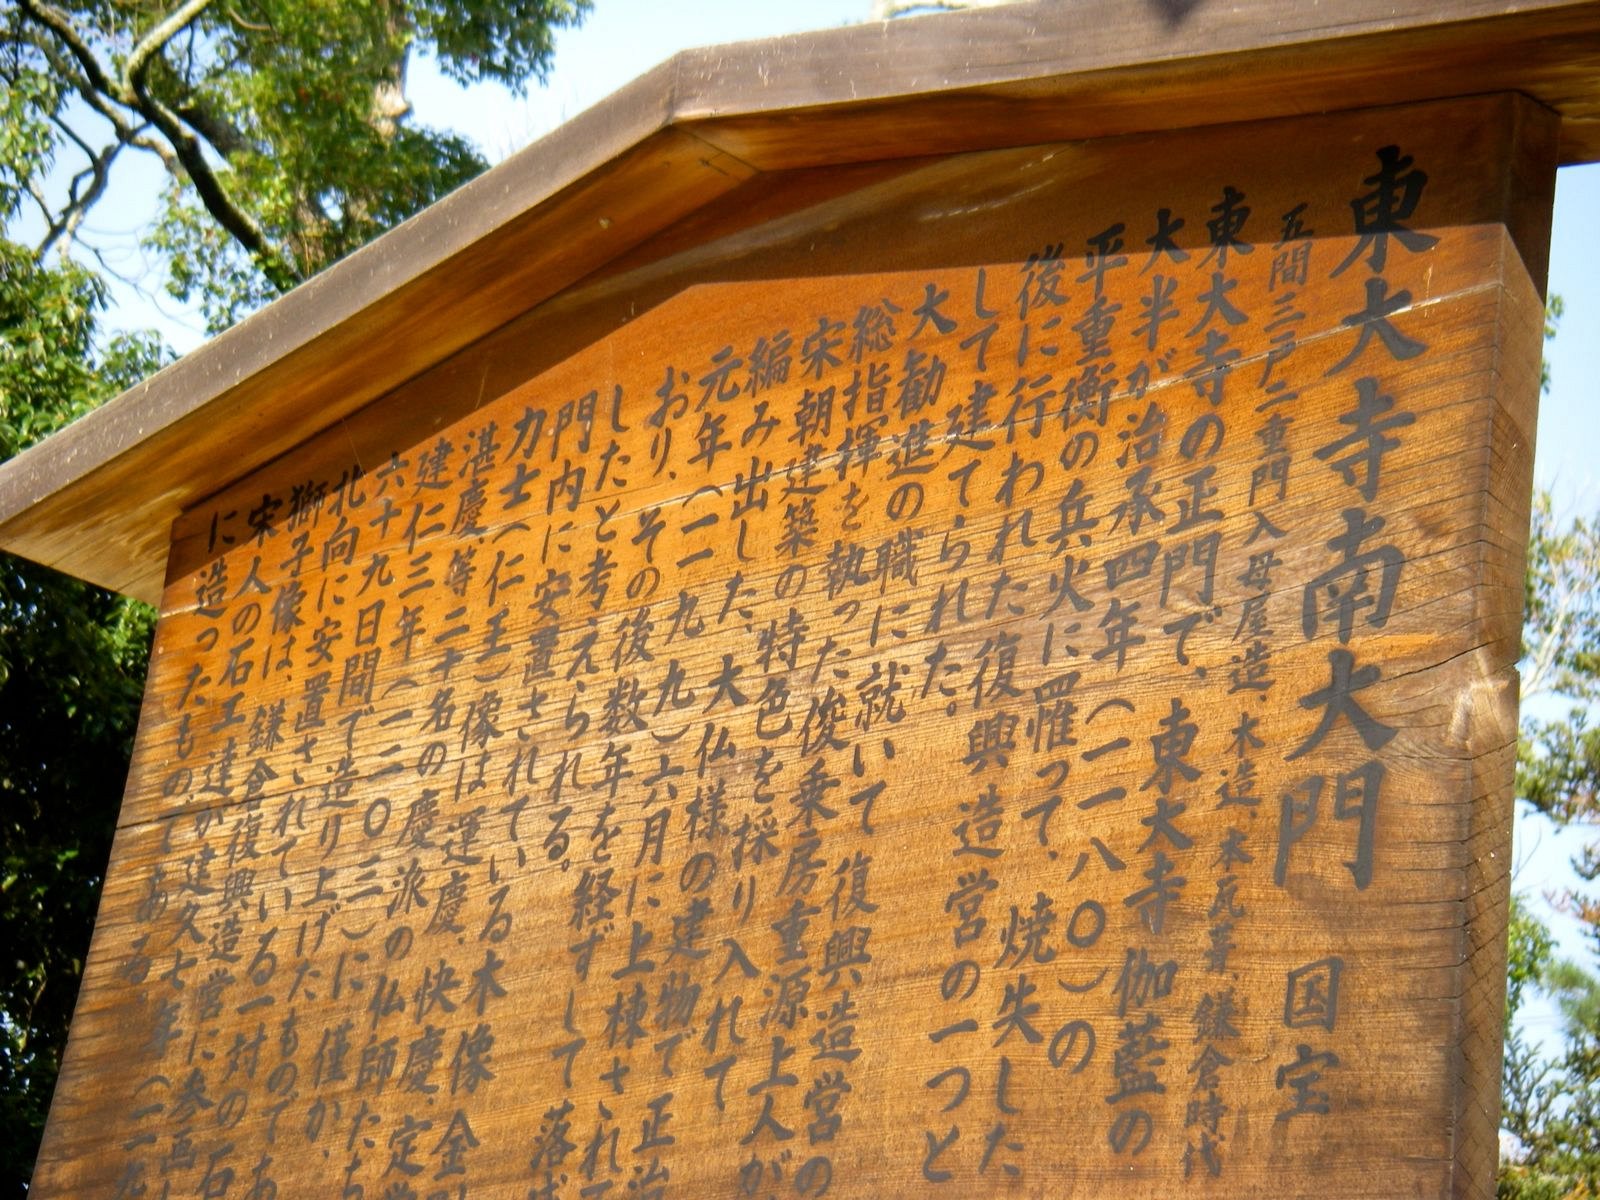 東大寺南大門 国宝
五間三戸二重門入母屋造、木造、本瓦葺、鎌倉時代
東大寺の正門で、東大寺伽藍の
大半が治承四年(一一八〇)の
平重衡の兵火に罹って、焼失した
後に行われた復興造営の一つと
して建てられた。
大勧進の職に就いて復興造営の
総指揮を執った俊乗房重源上人が
宋朝建築の特色を採り入れて
編み出した、大仏様の建物で正治
元年(一一九九)六月に上棟されて
おり、その後数年を経ずして落
したと考えられる。
門内に安置されている木像金
力士(仁王)像は運慶、快慶、定
湛慶、等二十名の慶派の仏師たち
建仁三年(一二〇三)に僅か、
六十九日間で造り上げたものであ
北向に安置されている一対の石
獅子像は、鎌倉復興造営に参画し
宋人の石工達が建久七年(一一九
に造ったものである。